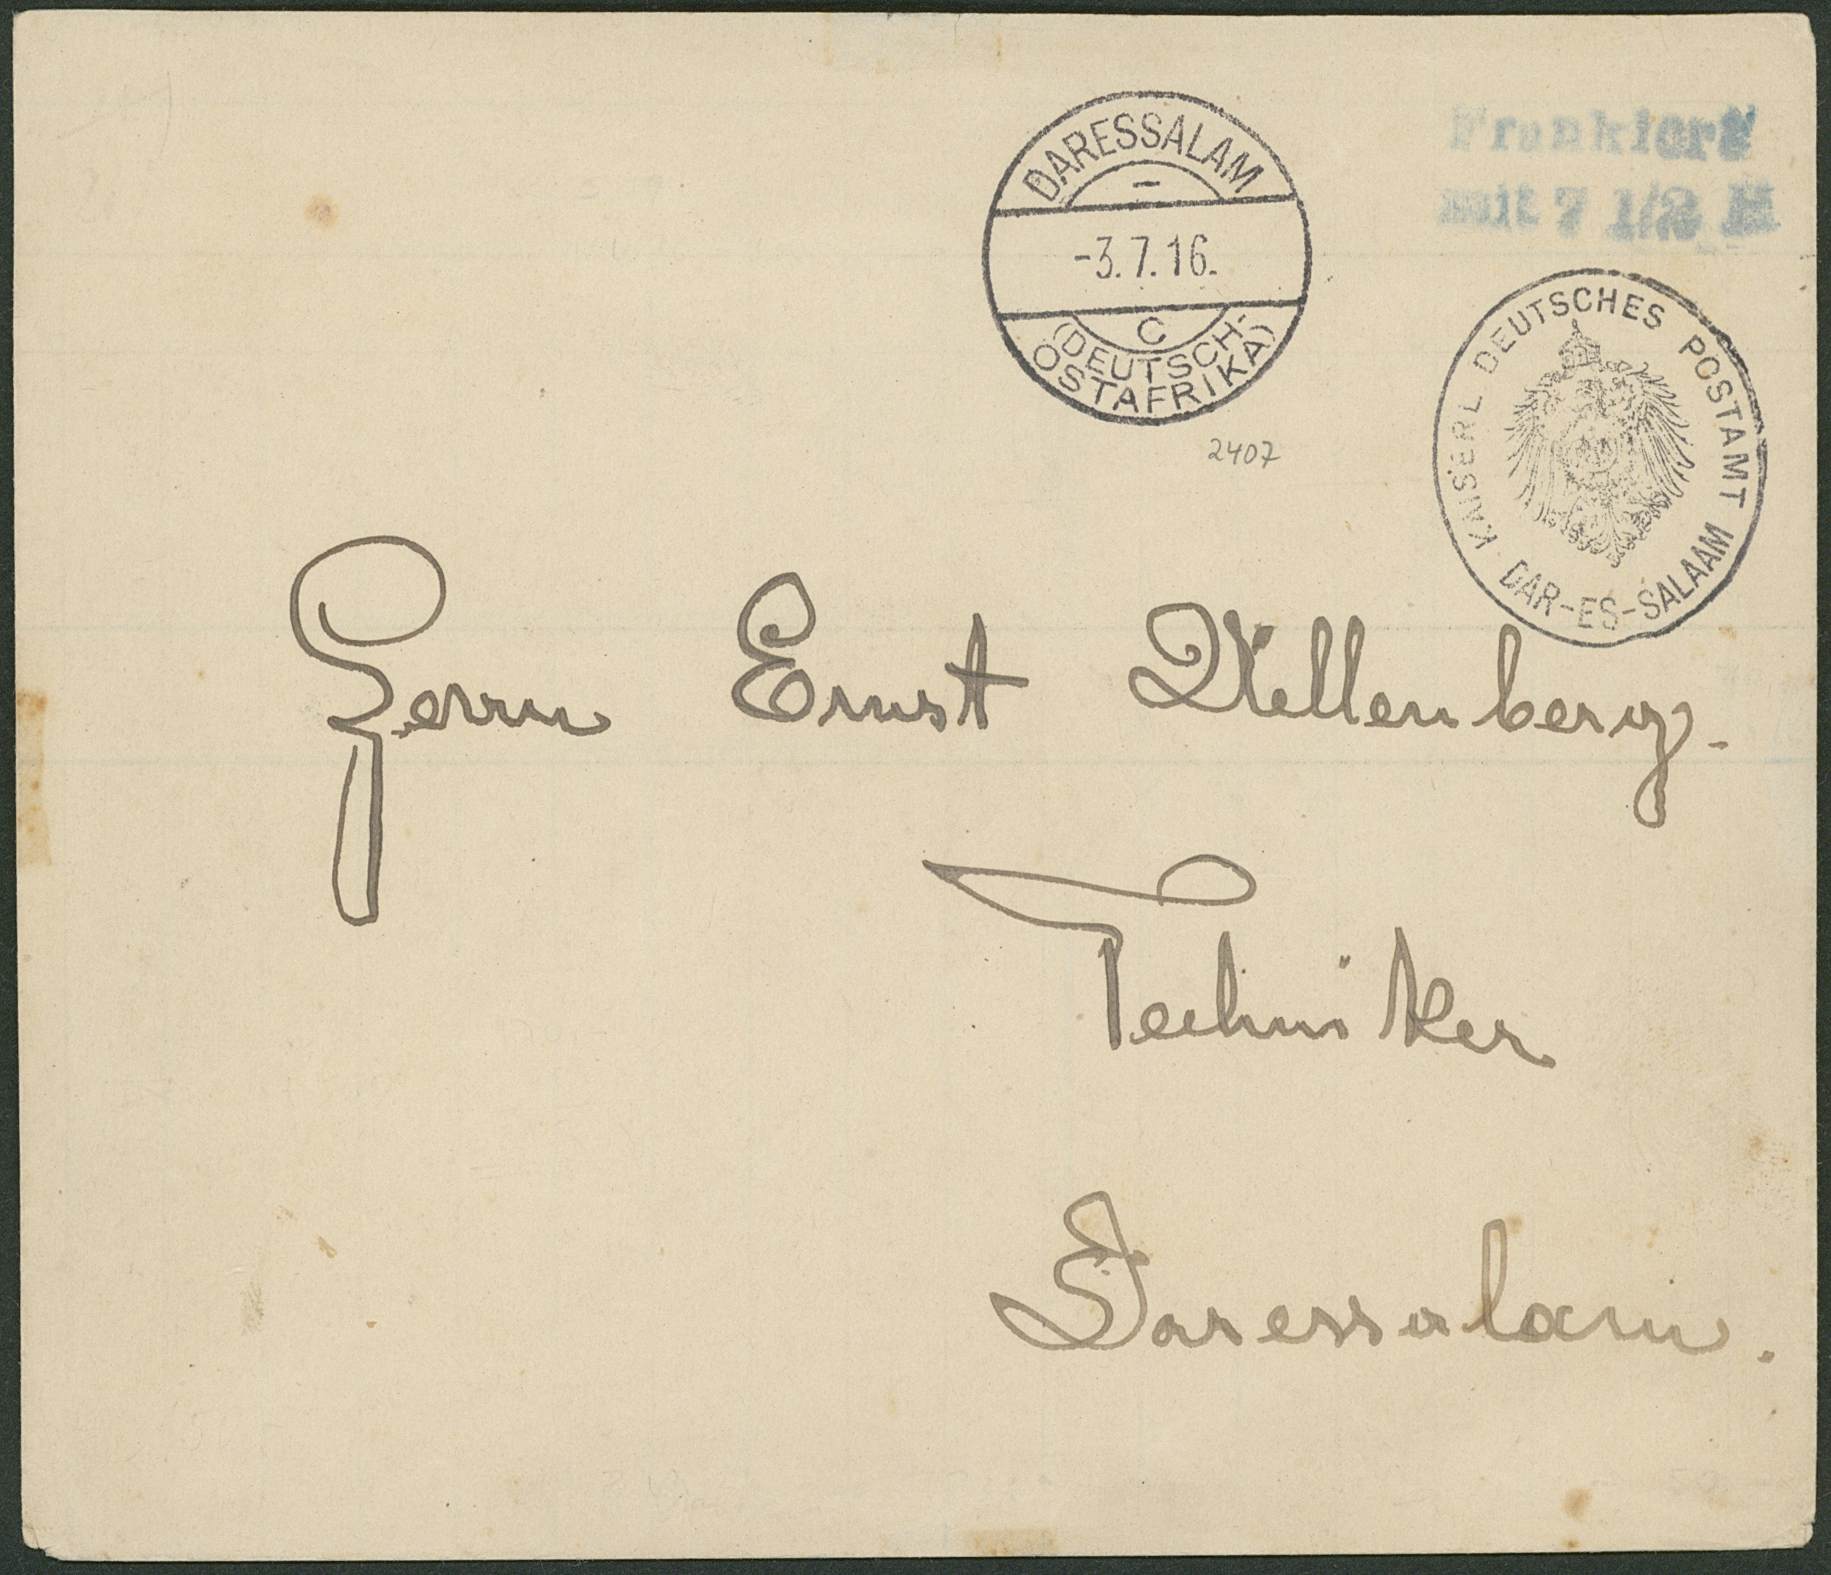 DARESSALAM
-3.7.16.
C
(DEUTSCH-
OSTAFRIKA)
Frankiert
mit 7 1/2 H
KAISERL DEUTSCHES POSTAMT
DAR-ES-SALAAM
2407
Herrn Ernst Kellenberg.
Techniker
Daressalam.